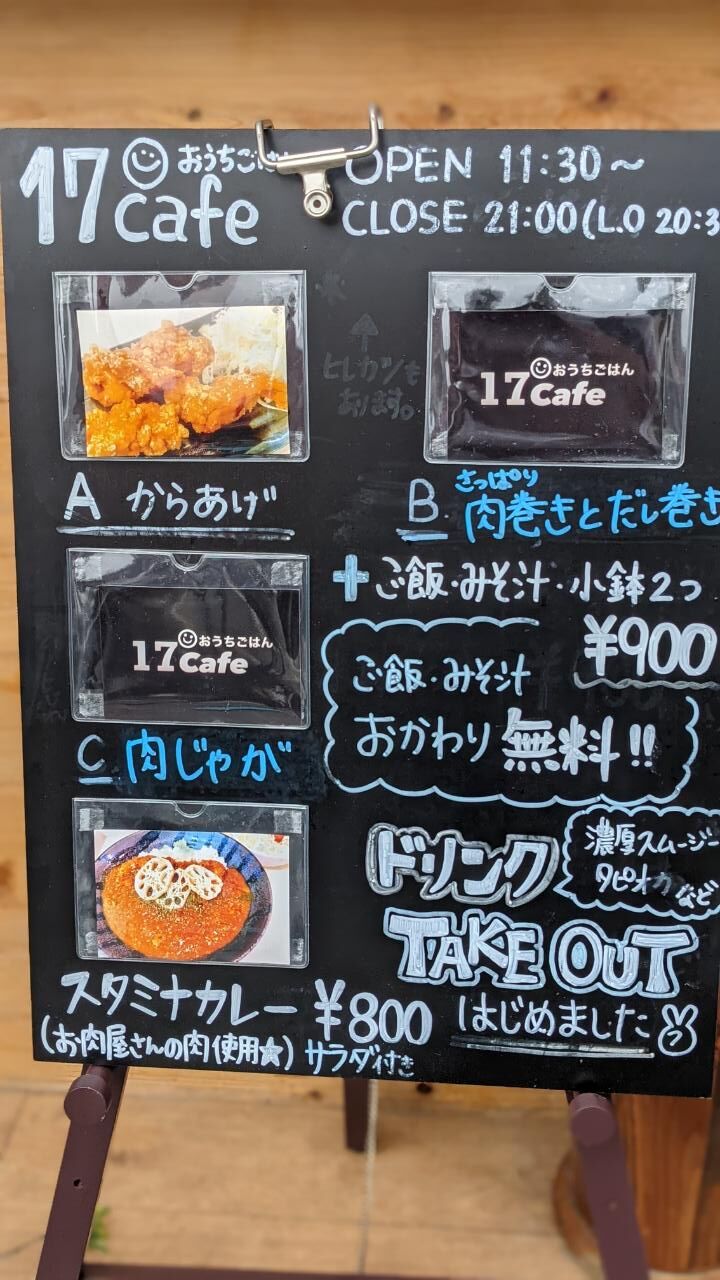 17 cafe おうちごはん
OPEN 11:30~
CLOSE 21:00(L.O 20:3
↑
ヒレカツも
あります。
17 おうちごはん
Cafe
A からあげ
B さっぱり
肉巻きとだし巻き
+ ご飯・みそ汁・小鉢2つ
¥900
17 おうちごはん
Cafe
ご飯・みそ汁
おかわり 無料!!
C 肉じゃが
ドリンク
濃厚スムージー
タピオカなど
TAKE OUT
はじめました
スタミナカレー ¥800
(お肉屋さんの肉使用★) サラダ付き